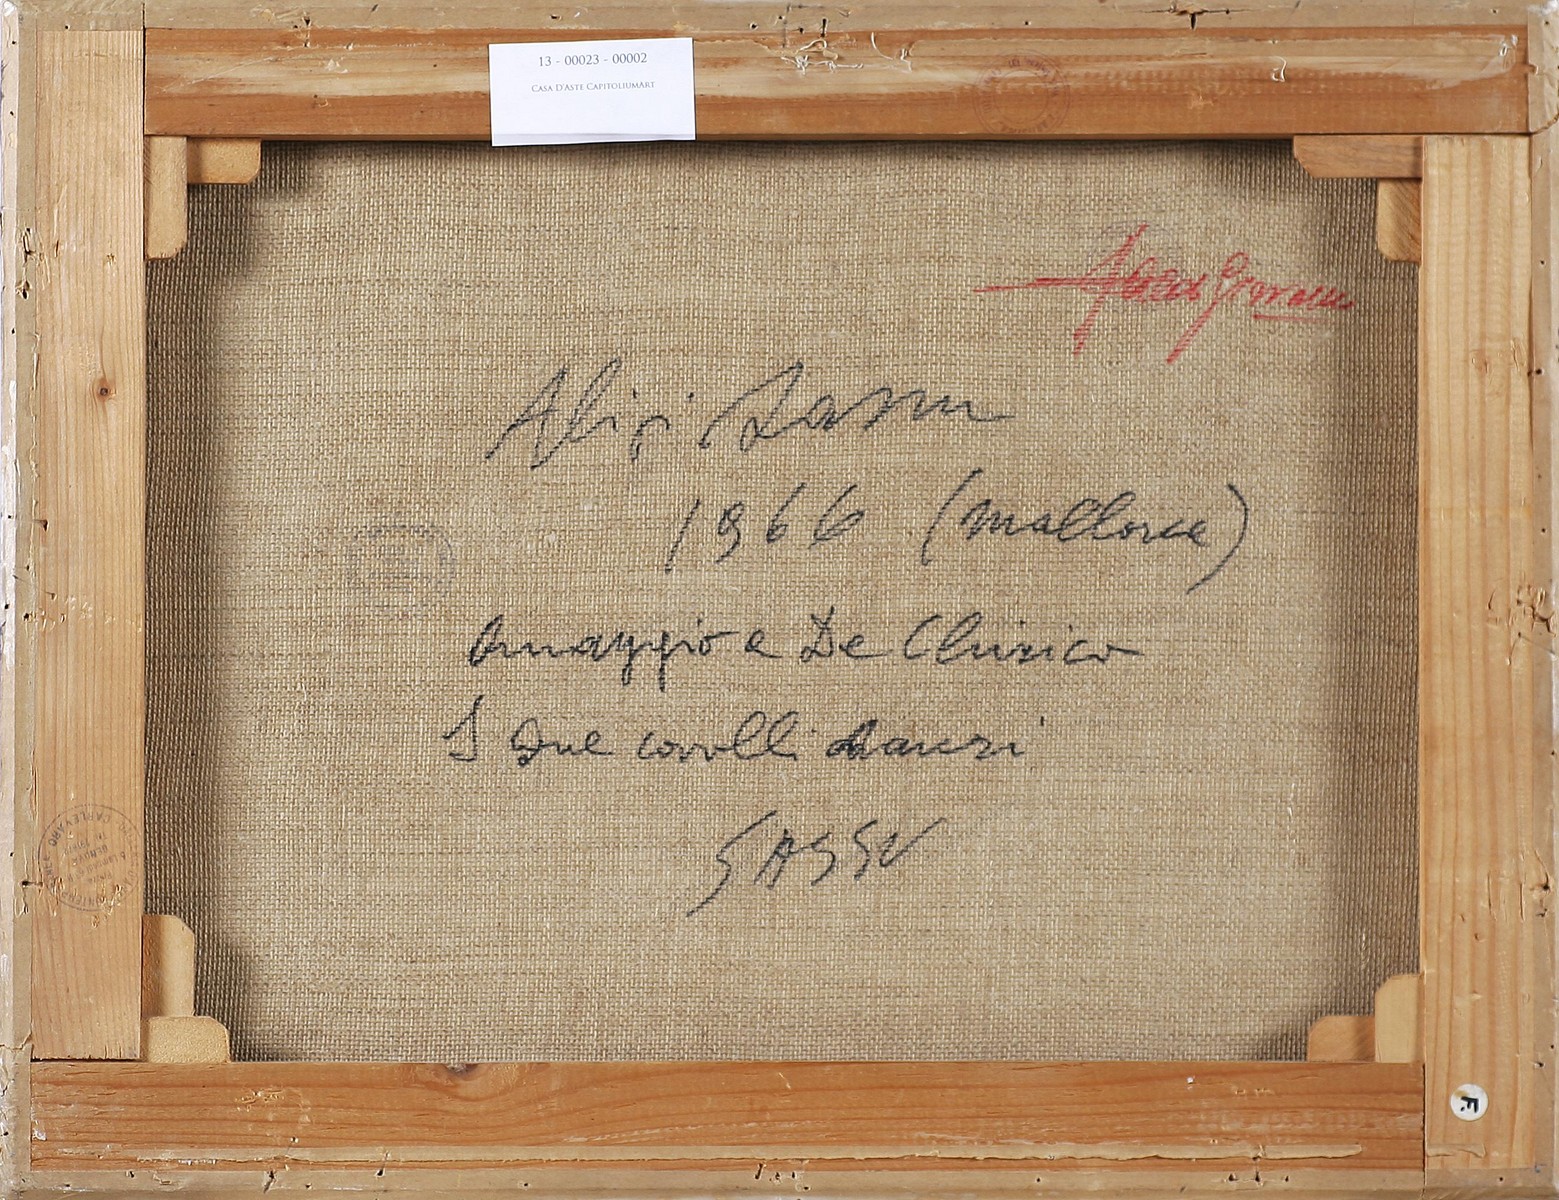 13 - 00023 - 00002
Casa D'Aste CapitoliumArt
Aligi Sassu
1966 (Mallorca)
Omaggio a De Chirico
I due cavalli danzi
SASSU
CARLEVARO
GENOVA
F.